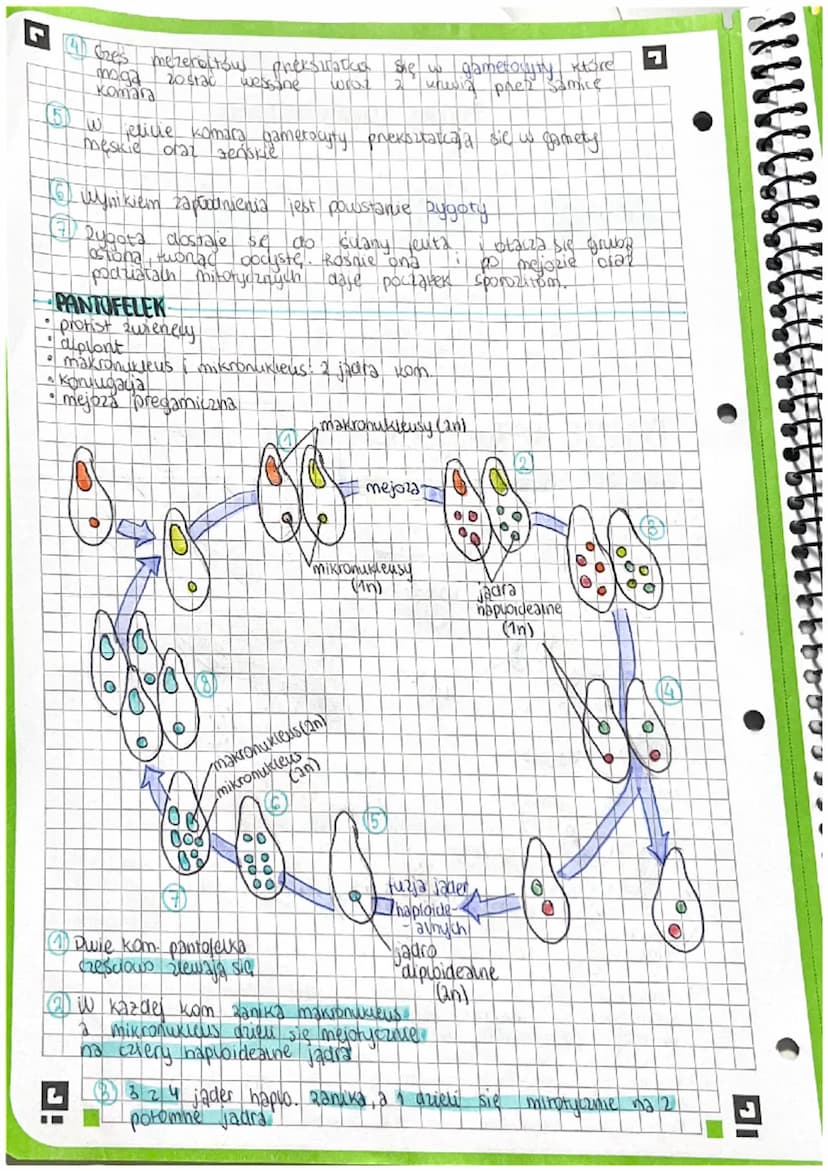 ④ Część merozoitów przekształca się w gametocyty, które
mogą zostać wessane wraz z krwią przez samicę
komara
⑤ W jelicie komara gametocyty przekształcają się w gamety
męskie oraz żeńskie
⑥ Wynikiem zapłodnienia jest powstanie zygoty
⑦ Zygota dostaje się do ściany jelita i otacza się grubą
osłoną, tworząc oocystę. Rośnie ona i po mejozie oraz
podziałach mitotycznych daje początek sporozoitom.
PANTOFELEK
• protist zwierzęcy
• diplont
• makronukleus i mikronukleus: 2 jądra kom.
• koniugacja
• mejoza pregamiczna
makronukleusy (2n)
①
②
mejoza
③
mikronukleusy
(1n)
jądra
haploidealne
(1n)
④
⑧
makronukleus (2n)
mikronukleus
(2n)
⑥
⑤
fuzja jąder
haploide-
-alnych
⑦
jądro
diploidealne
(2n)
① Dwie kom. pantofelka
częściowo zlewają się
② W każdej kom zanika makronukleus
a mikronukleus dzieli się mejotycznie
na cztery haploidealne jądra
③ 3 z 4 jąder haplo. zanika, a 1 dzieli się mitotycznie na 2
potomne jądra